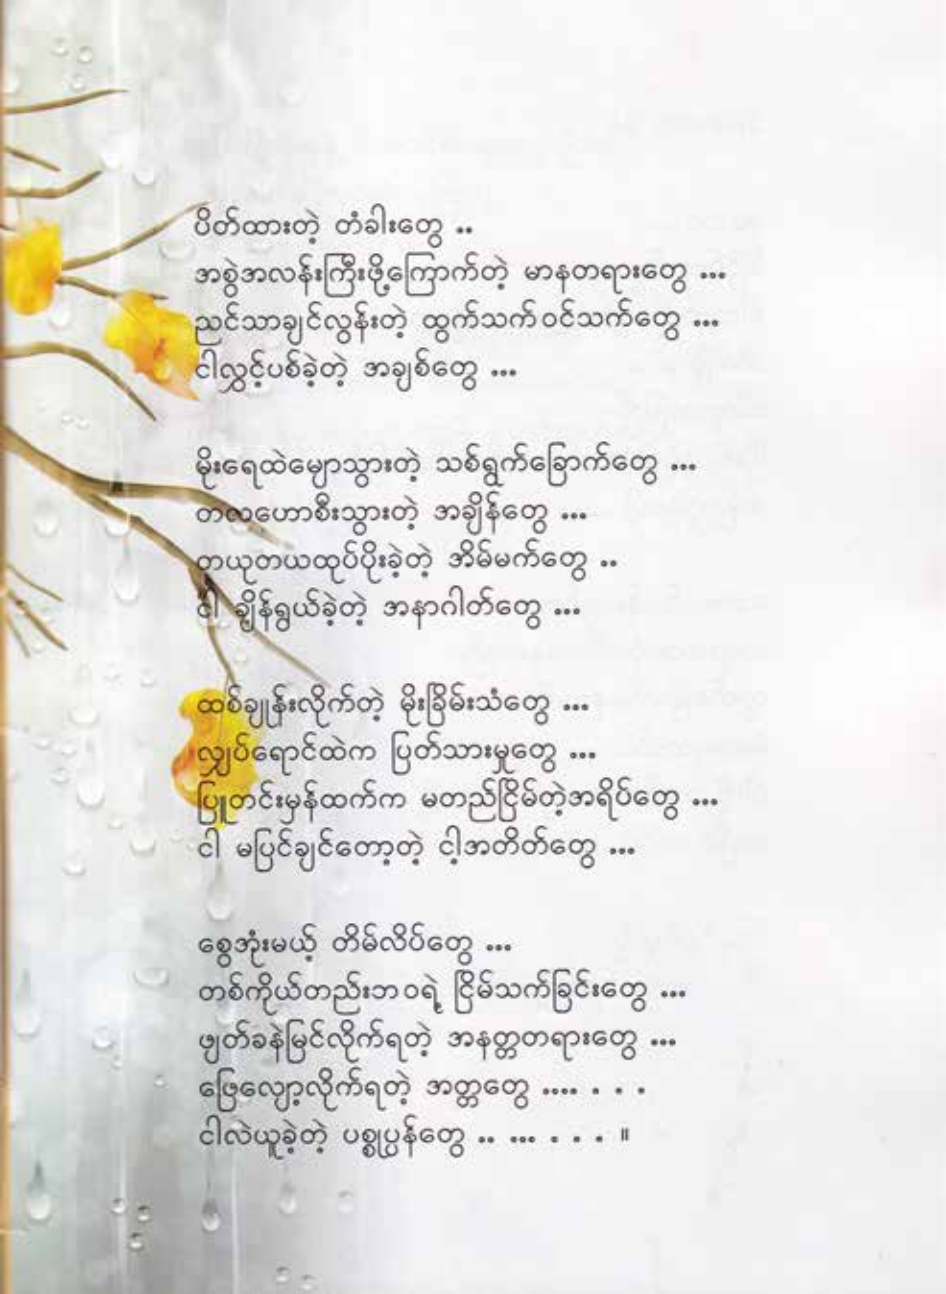 ပိတ်ထားတဲ့ တံခါးတွေ ..
အစွဲအလန်းကြီးဖို့ကြောက်တဲ့ မာနတရားတွေ ...
ညင်သာချင်လွန်းတဲ့ ထွက်သက်ဝင်သက်တွေ ...
ငါလွှင့်ပစ်ခဲ့တဲ့ အချစ်တွေ ...
မိုးရေထဲမျောသွားတဲ့ သစ်ရွက်ခြောက်တွေ ...
တဇောစီးသွားတဲ့ အချိန်တွေ ...
တယုတယထုပ်ပိုးခဲ့တဲ့ အိမ်မက်တွေ ..
ငါ ချိန်ရွယ်ခဲ့တဲ့ အနာဂါတ်တွေ ...
ထစ်ချုန်းလိုက်တဲ့ မိုးခြိမ်းသံတွေ ...
လျှပ်ရောင်ထဲက ပြတ်သားမှုတွေ ...
ပြူတင်းမှန်ထက်က မတည်ငြိမ်တဲ့အရိပ်တွေ ...
ငါ မပြင်ချင်တော့တဲ့ ငါ့အတိတ်တွေ ...
စွေအုံးမယ့် တိမ်လိပ်တွေ ...
တစ်ကိုယ်တည်းဘဝရဲ့ ငြိမ်သက်ခြင်းတွေ ...
ဖျတ်ခနဲမြင်လိုက်ရတဲ့ အနတ္တတရားတွေ ...
ဖြေလျော့လိုက်ရတဲ့ အတ္တတွေ .... . . .
ငါလဲယူခဲ့တဲ့ ပစ္စုပ္ပန်တွေ .. ... . . . ။